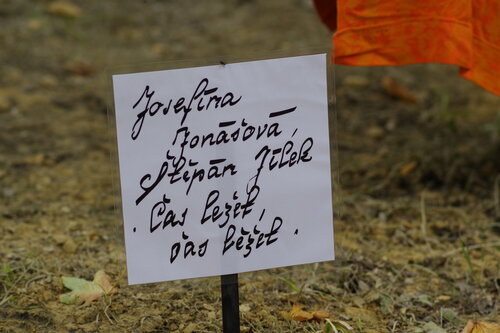 Josefína
Jonášová,
Štěpán Jílek
. Čas ležet,
čas běžet .